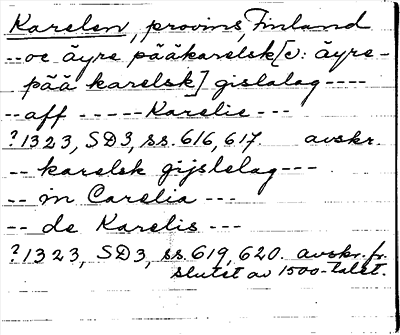 Karelen, provins, Finland
-- oc äyre pääkarelsk [ɔ: äyre-
pää karelsk] gislalag ----
-- aff ----- Karelie ---
?1323, SD3, ss. 616, 617. avskr.
-- karelsk gijslelag ---
-- in Carelia ---
-- de Karelis ---
?1323, SD3, ss. 619, 620. avskr. fr.
slutet av 1500-talet.